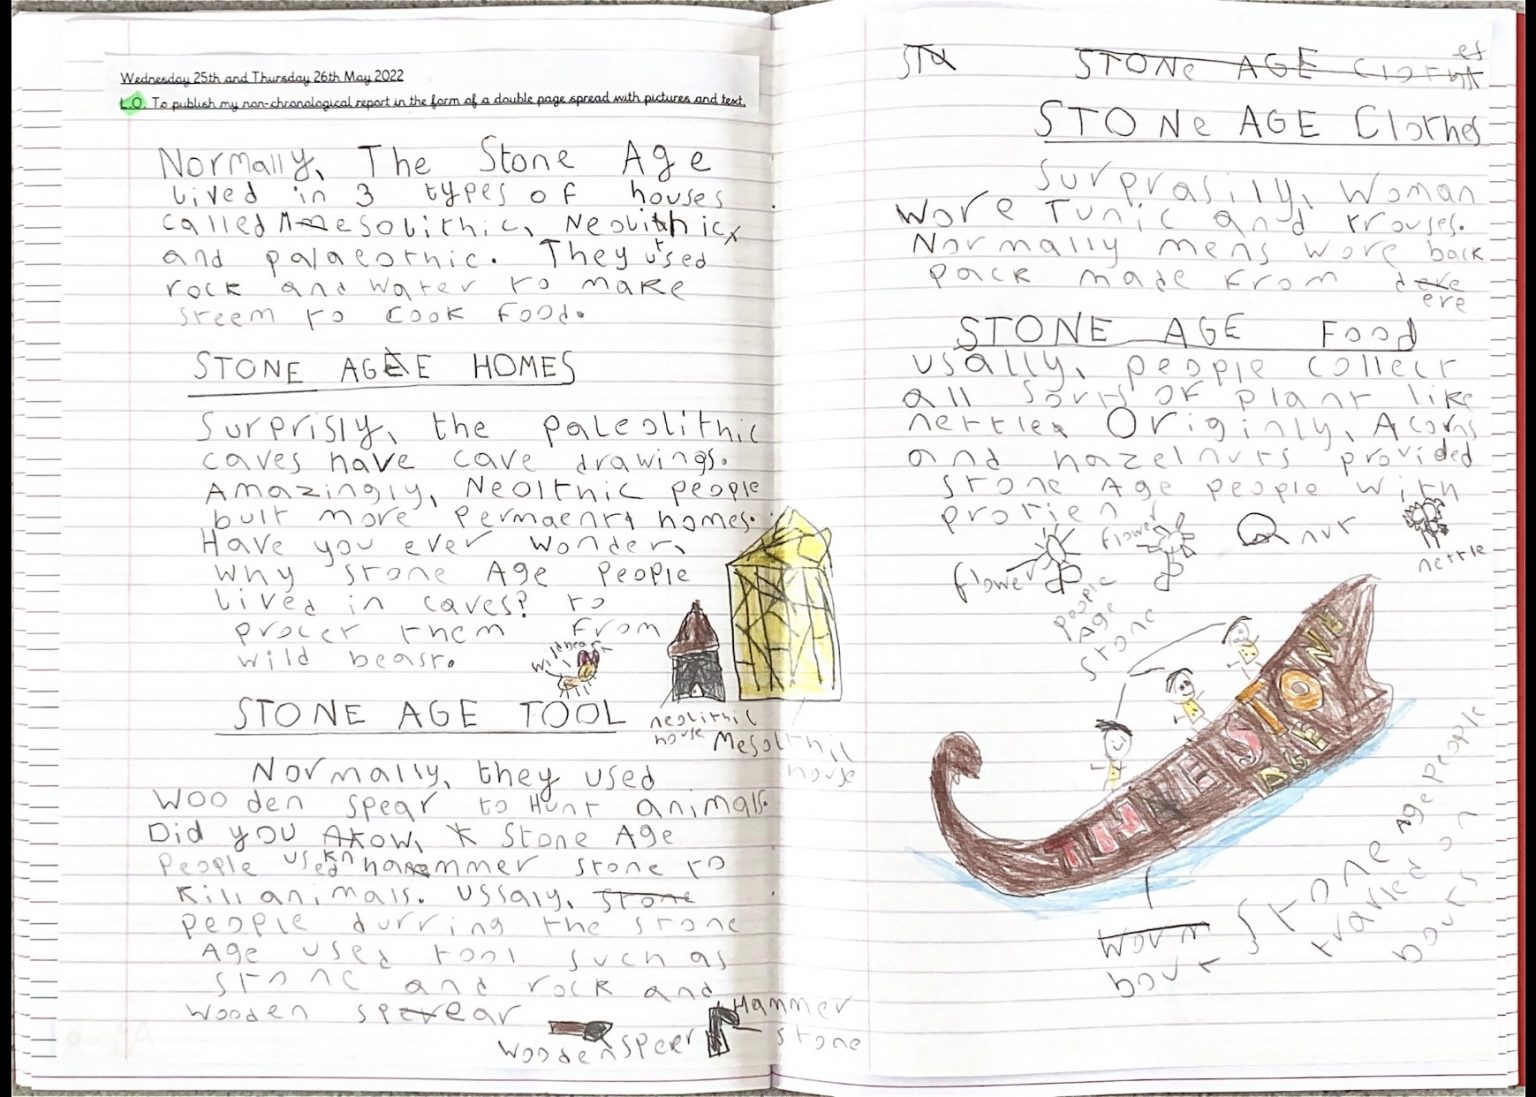 Wednesday 25th and Thursday 26th May 2022
L.O. To publish my non-chronological report in the form of a double page spread with pictures and text.
Normally, The Stone Age
lived in 3 types of houses
called Mesolithic, Neolithic,
and palaeothic. They used
rock and water to make
steem to cook food.
STONE AGE HOMES
Surprisly, the paleolithic
caves have cave drawings.
Amazingly, Neolthic people
bult more permaent homes.
Have you ever wonder,
why stone Age people
lived in caves? to
procer them from
wild beast.
wild beast
neolithil
house
Mesolithil
house
STONE AGE TOOL
Normally, they used
wooden spear to Hunt animals.
Did you know, Stone Age
people used hammer stone to
kill animals. ussaly, stone
people durring the stone
Age used tool such as
stone and rock and
wooden spear
wooden speer
Hammer
stone
STONE AGE
STONE AGE Clothes
Surprasily, woman
wore Tunic and trouses.
Normally mens wore back
pack made from dere
ere
STONE AGE Food
usally, people collect
all sorts of plant like
nettles Originly, Acorns
and hazelnuts provided
stone Age people with
protien
flower
flower
nut
nettle
people
Age
stone
THE STONE
AGE
boat
Stone Age people
travled on
bouts